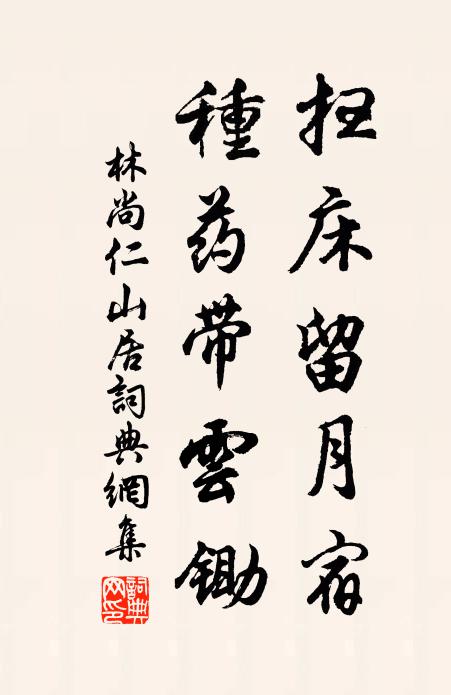 扫床留月宿
种药带雲锄
林尚仁山居詞典網集
詞典网印